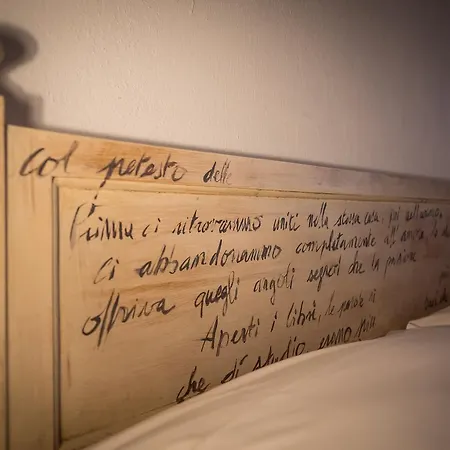 col pretesto delle
Prima ci ritrovammo uniti nella stessa casa, poi nell'animo
ci abbandonammo completamente all'amore
offriva quegli angoli segreti che la passione
Aperti i libri, le parole
che di studio erano più